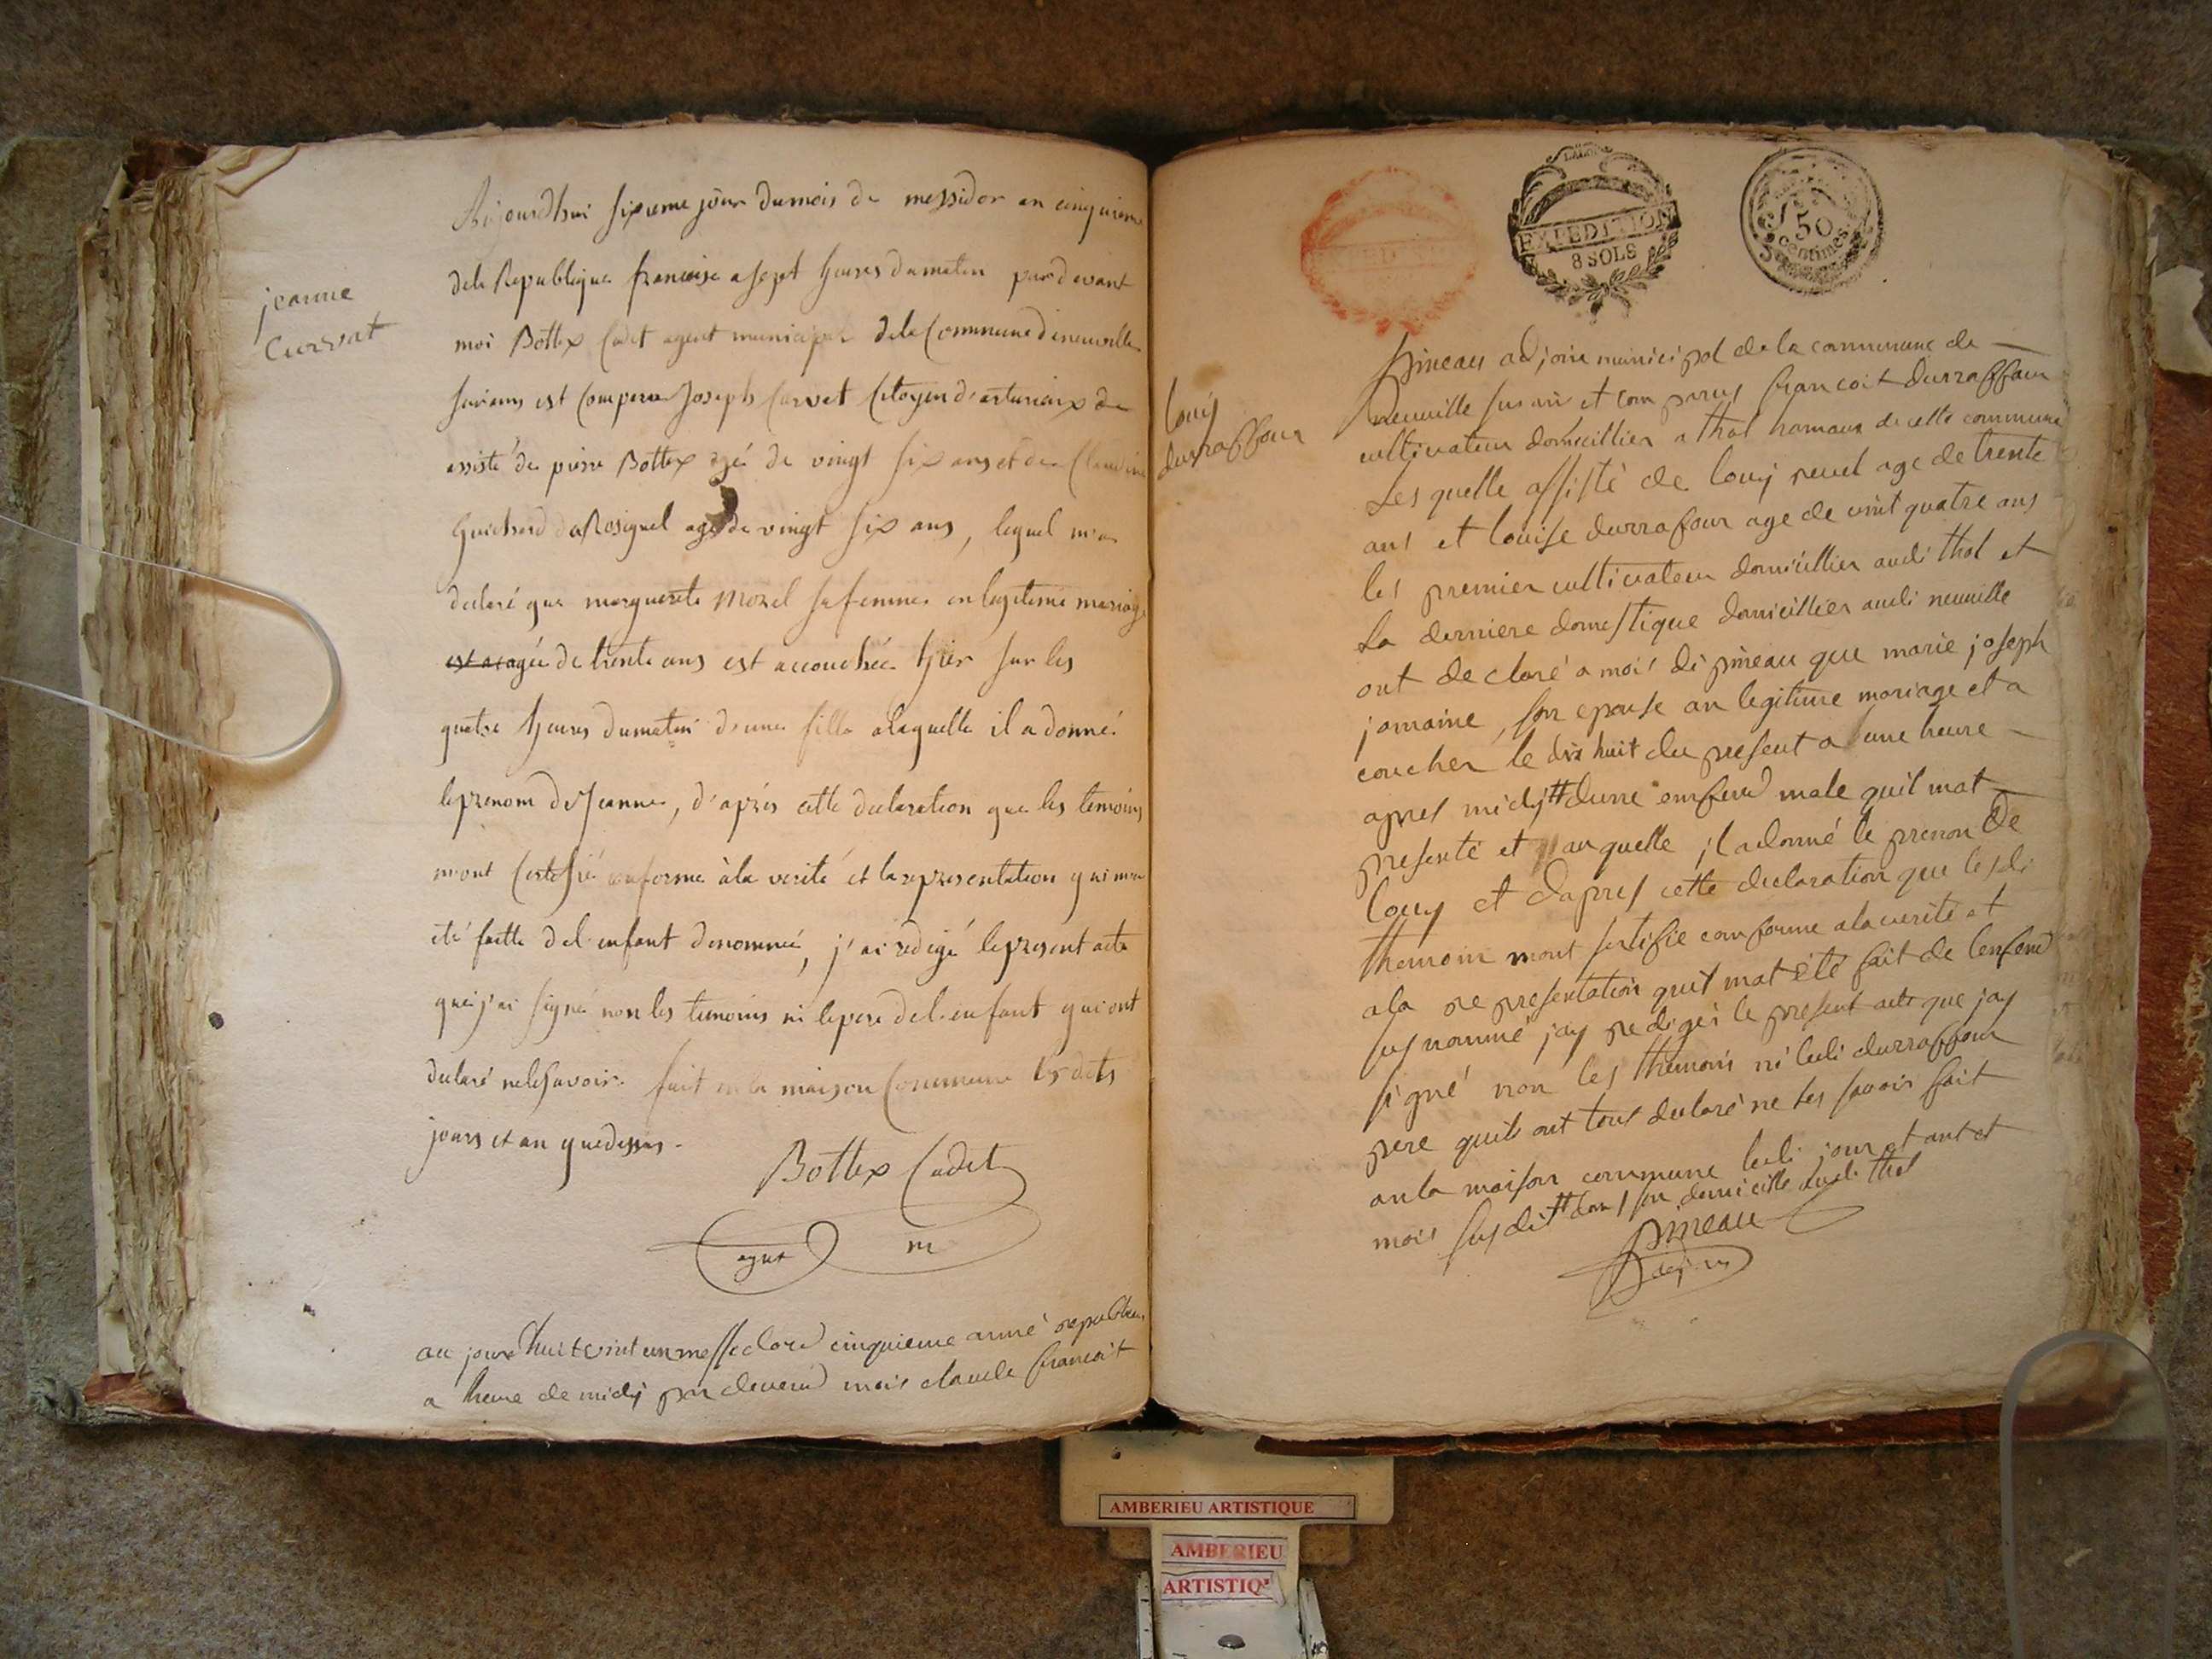 jeanne
Curvat
Aujourdhui sixieme jour du mois de messidor an cinquieme
dela Republique francoise a sept heures du matin par devant
moi Bottex Cadet agent municipal dela Commune de neuville
surains est Comparu Joseph Curvat Citoyen
assisté de pierre Bottex agé de vingt six ans et de Claudine
Guichard age de vingt six ans, lequel m'a
declaré que marguerite Morel sa femme en legitime mariage
agée de trente ans est accouchée hier sur les
quatre heures du matin d'une fille alaquelle il a donné
leprenom de Jeanne, d'après cette declaration que les temoins
m'ont Certifié conforme àla verité et la representation qui m'a
été faitte del'enfant denommé, j'ai redigé lepresent acte
que j'ai signé non les temoins ni lepere del'enfant qui ont
declaré nelesavoir fait en la maison Commune les dits
jours et an quedessus.
Bottex Cadet
agent m
au jourdhuit vint un messedord cinquieme anné republicu
a heure de midy par devend mois claude francoit
EXPEDITION
8 SOLS
50
centimes
louij
durraffour
pineau adjoin municipal de la commune de
neuville sus ain et comparus francoit durraffour
cultivateur domicillier a thol hamaux de cette commune
Les quelle assisté de louij age de trente
ans et louise durrafour age de vint quatre ans
les premier cultivateur domicillier audi thol et
La derniere domestique domicillier audi neuville
ont declaré a mois di pineau que marie joseph
jomaine, son epouse an legitime mariage et a
coucher le dix huit du present a une heure
apres midij dunne emfend male quil mat
presenté et auquelle il a donné le prenon de
louij et dapres cette declaration que lesdi
themoin mont sertifie comforme ala verité et
ala representation quit mat été fait de lenfend
susnommé jay redigér le present acte que jay
signé non les themoins ni ledi durraffour
pere quit ont tous declaré ne les savoir fait
an la maison commune ledi jour et ant et
mois susdit dans son domicille audi thol
pineau
adjoin
AMBERIEU ARTISTIQUE
AMBERIEU
ARTISTIQ